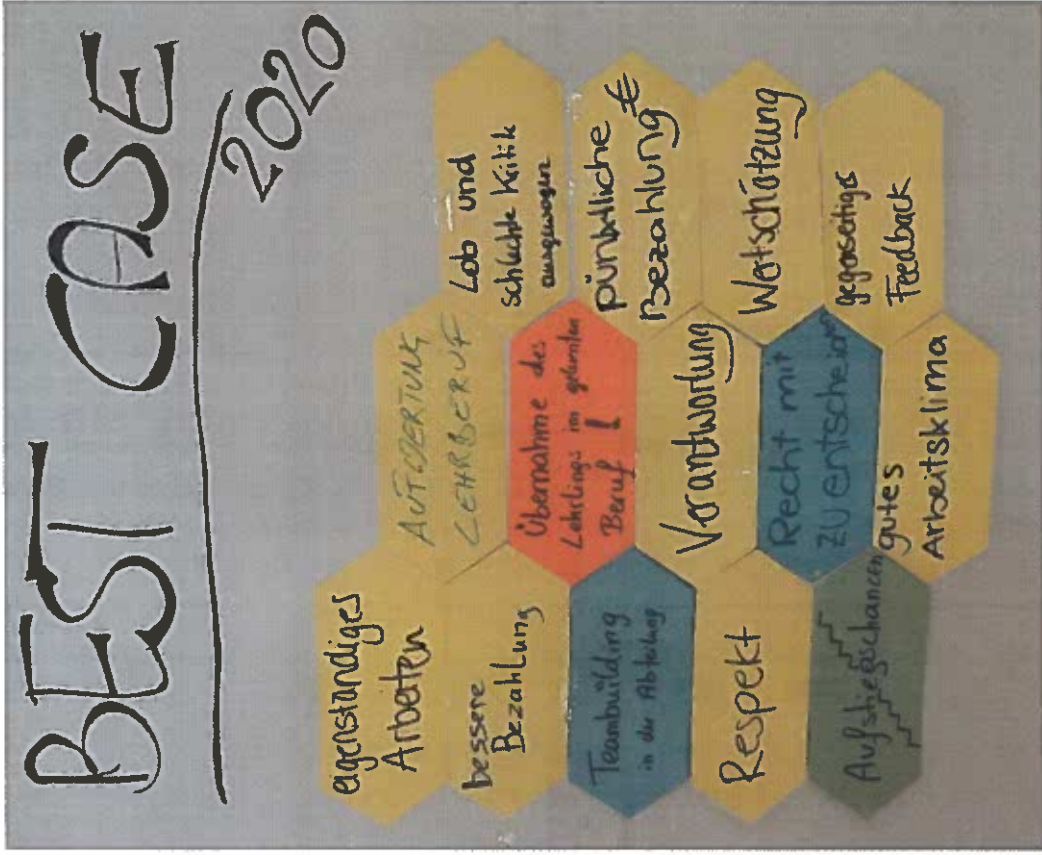 BEST CASE
2020
eigenständiges
Arbeiten
bessere
Bezahlung
Teambuilding
in der Abteilung
Respekt
Aufstiegschancen
AUFWERTUNG
LEHRBERUF
Übernahme des
Lehrlings im gelernten
Beruf !
Verantwortung
Recht mit
zu entscheiden
gutes
Arbeitsklima
Lob und
schlichte Kritik
ausgewogen
pünktliche
Bezahlung €
Wertschätzung
gegenseitiges
Feedback